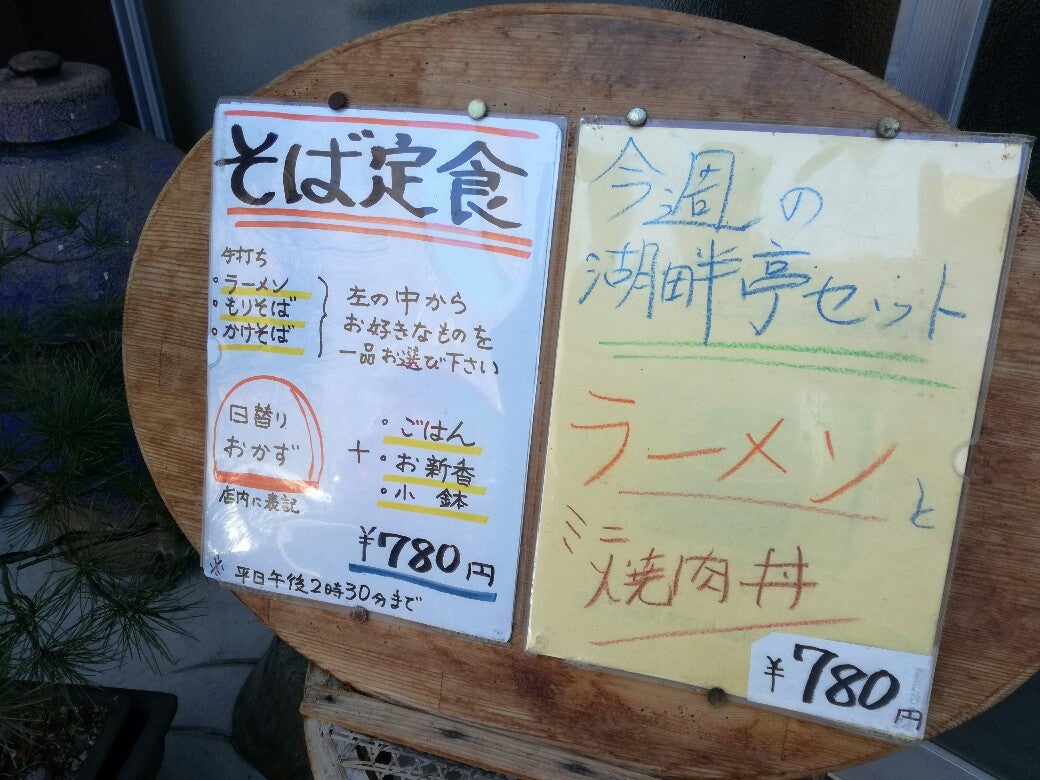 そば定食
手打ち
・ラーメン
・もりそば
・かけそば
左の中から
お好きなものを
一品お選び下さい
日替り
おかず
店内に表記
+
・ごはん
・お新香
・小鉢
¥780円
※平日午後2時30分まで
今週の
湖畔亭セット
ラーメンと
ミニ
焼肉丼
¥780円